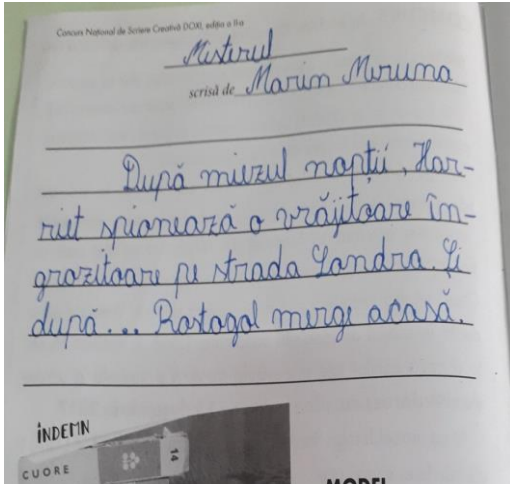 Concurs Național de Scriere Creativă DOXI, ediția a II-a
Misterul
scrisă de Marin Miruna
După miezul nopții, Har-
riet spionează o vrăjitoare în-
grozitoare pe strada Landra. Și
după... Rostogol merge acasă.
ÎNDEMN
CUORE
14
MODEL